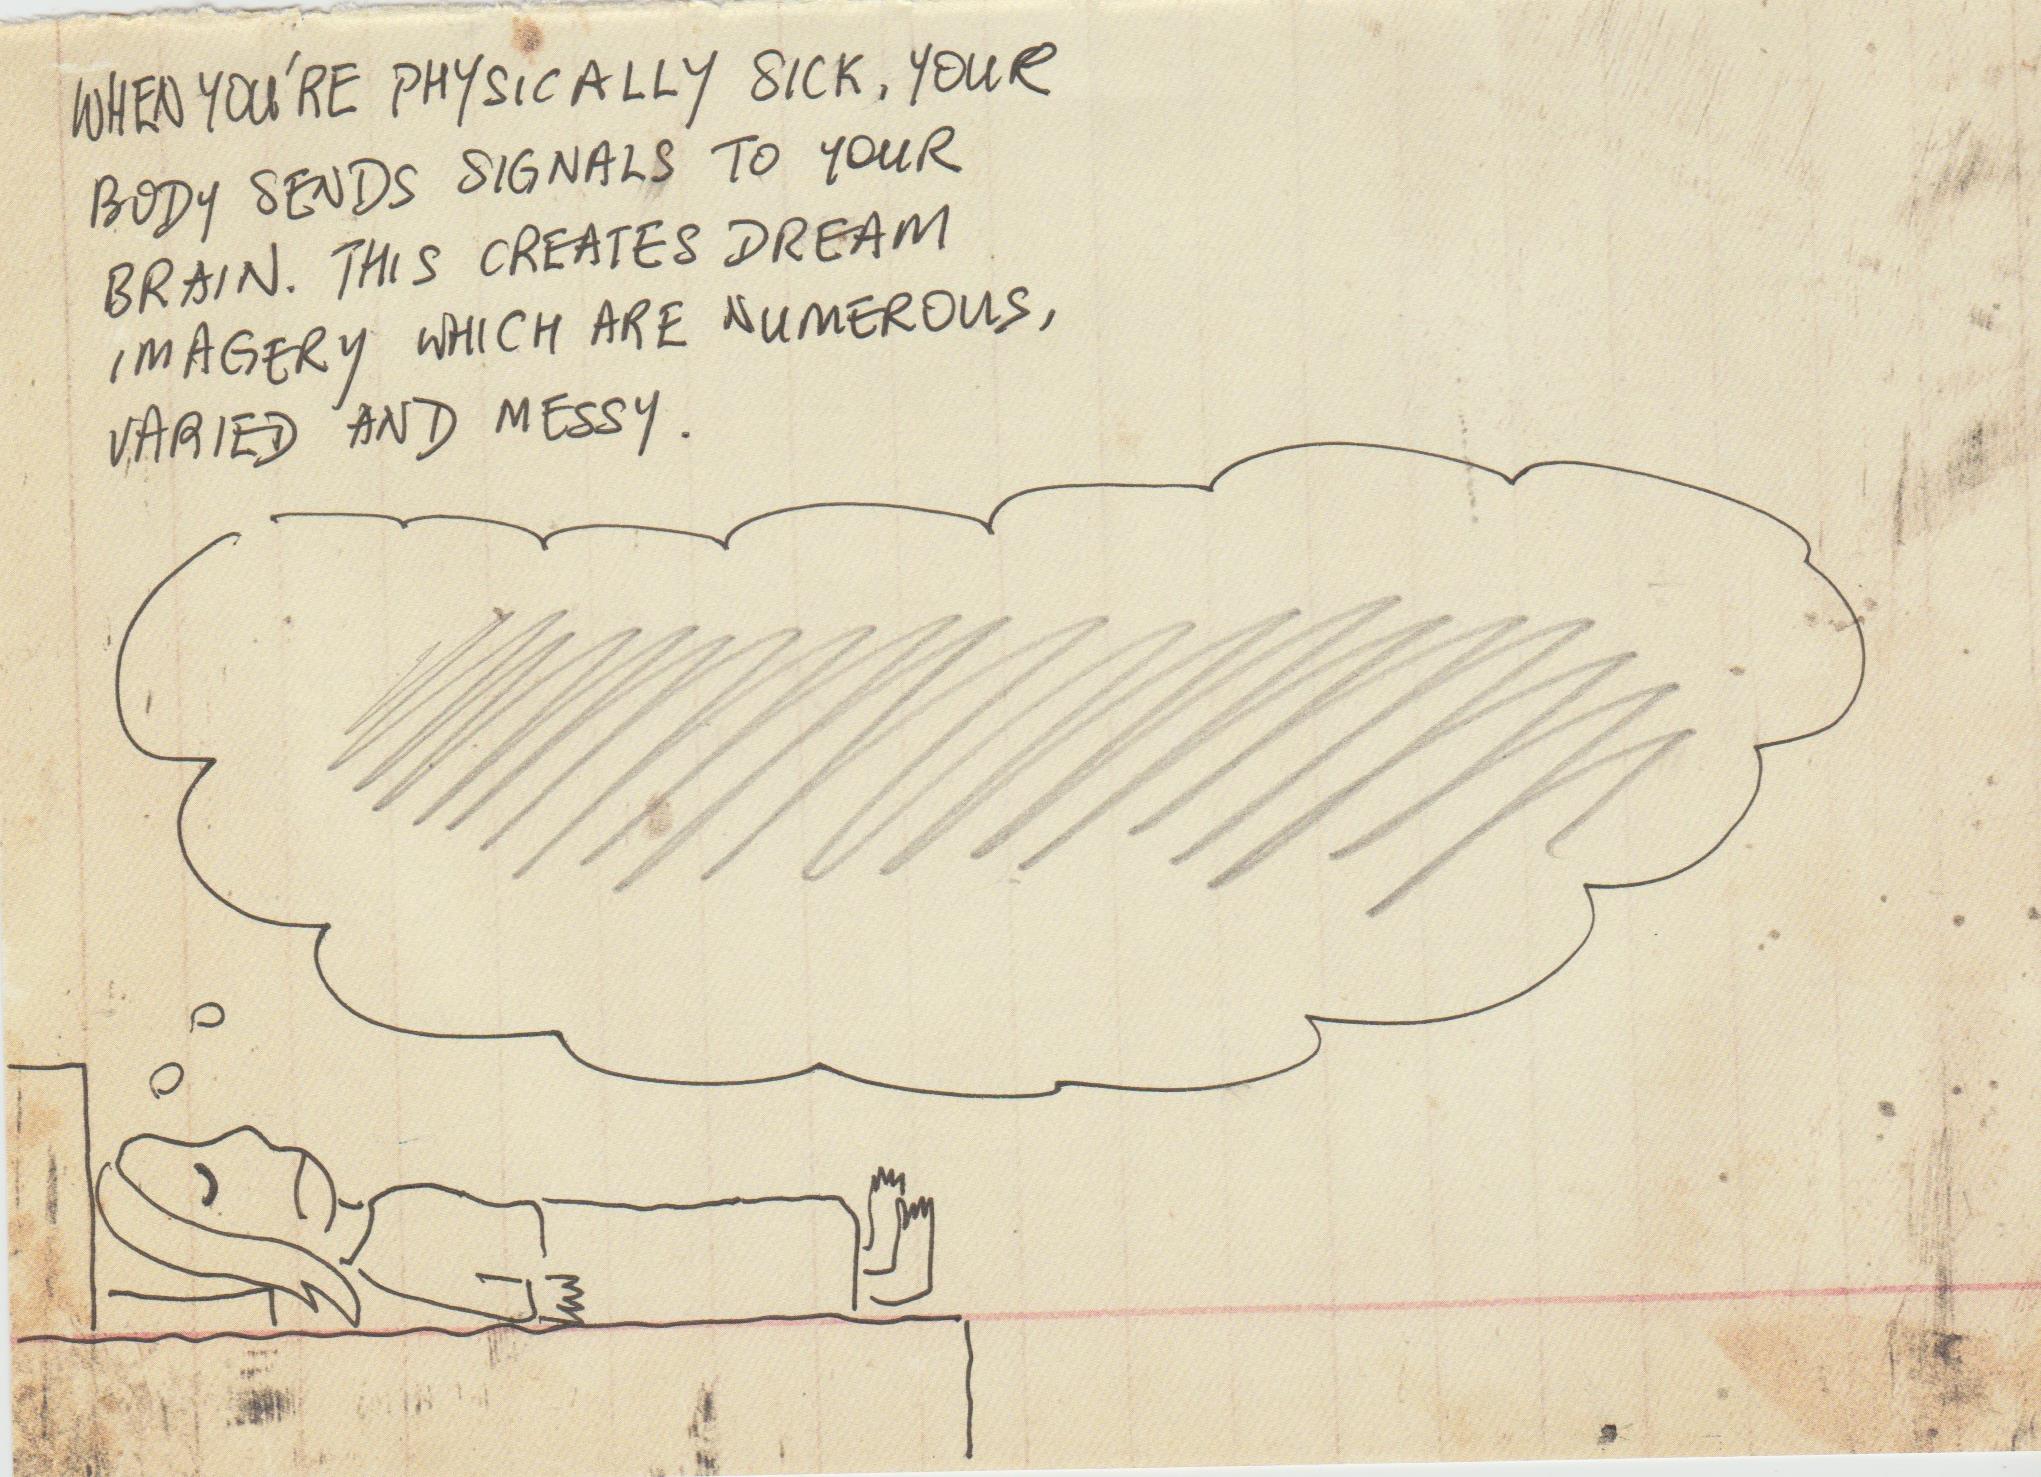 WHEN YOU'RE PHYSICALLY SICK, YOUR
BODY SENDS SIGNALS TO YOUR
BRAIN. THIS CREATES DREAM
IMAGERY WHICH ARE NUMEROUS,
VARIED AND MESSY.